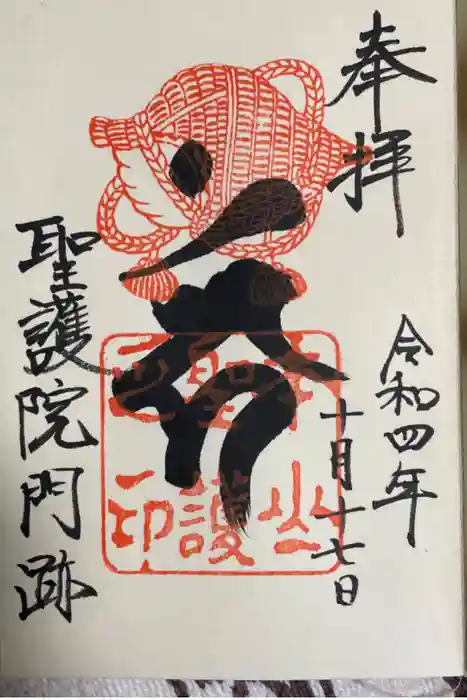 奉拝
令和四年
十月十七日
聖護
聖護院門跡